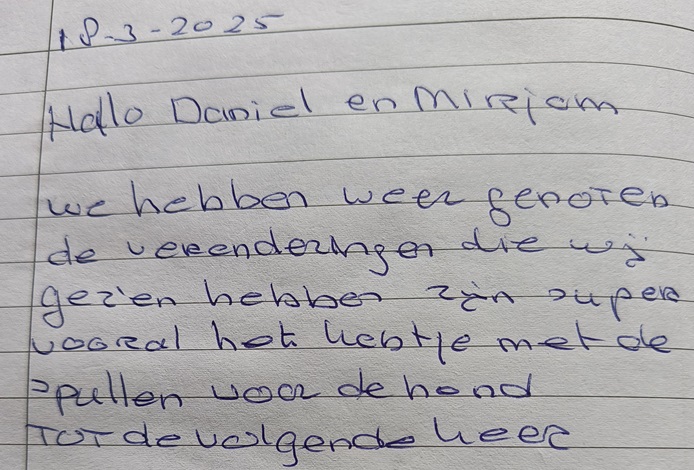 18-3-2025
Hallo Daniel en Mirejam
we hebben weer genoten
de verenderingen die wij
gezien hebben zijn super
vooral het kastje met de
spullen voor de hond
TOT de volgende keer